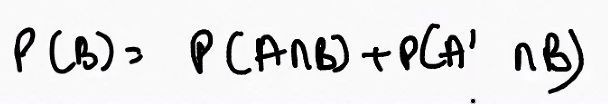 P(B) = P(A∩B) + P(A' ∩B)